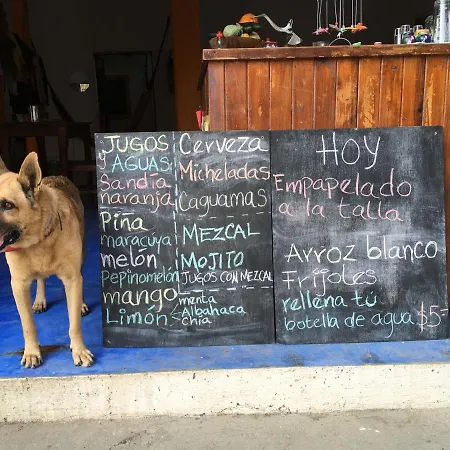 JUGOS
y AGUAS
Sandía
naranja
Piña
maracuya
melón
Pepinomelón
mango
Limón
menta
Albahaca
chia
Cerveza
Micheladas
Caguamas
MEZCAL
MOJITO
JUGOS CON MEZCAL
HOY
Empapelado
a la talla
Arroz blanco
Frijoles
rellena tú
botella de agua $5-